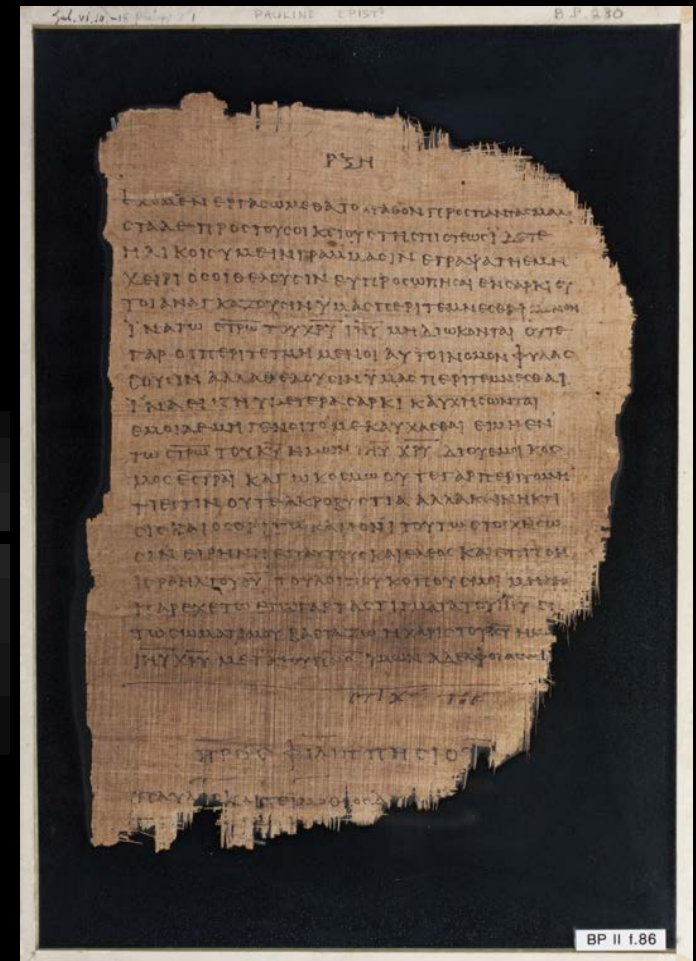 PAULINE EPIST:
ΡΞΗ
ΕΧΟΜΕΝ ΕΡΓΑCΩΜΕΘΑ ΤΟ ΑΓΑΘΟΝ ΠΡΟC ΠΑΝΤΑC ΜΑΛΙ
CΤΑ ΔΕ ΠΡΟC ΤΟΥC ΟΙΚΕΙΟΥC ΤΗC ΠΙCΤΕΩC ΙΔΕΤΕ
ΗΛΙΚΟΙC ΥΜΕΙΝ ΓΡΑΜΜΑCΙΝ ΕΓΡΑΨΑ ΤΗ ΕΜΗ
ΧΕΙΡΙ ΟCΟΙ ΘΕΛΟΥCΙΝ ΕΥΠΡΟCΩΠΗCΑΙ ΕΝ CΑΡΚΙ ΟΥ
ΤΟΙ ΑΝΑΓΚΑΖΟΥCΙΝ ΥΜΑC ΠΕΡΙΤΕΜΝΕCΘΑΙ ΜΟΝΟΝ
ΙΝΑ ΤΩ C̅Τ̅Ρ̅Ω̅ ΤΟΥ Χ̅Ρ̅Υ̅ Ι̅Η̅Υ̅ ΜΗ ΔΙΩΚΟΝΤΑΙ ΟΥΤΕ
ΓΑΡ ΟΙ ΠΕΡΙΤΕΤΜΗΜΕΝΟΙ ΑΥΤΟΙ ΝΟΜΟΝ ΦΥΛΑC
CΟΥCΙΝ ΑΛΛΑ ΘΕΛΟΥCΙΝ ΥΜΑC ΠΕΡΙΤΕΜΝΕCΘΑΙ
ΙΝΑ ΕΝ ΤΗ ΥΜΕΤΕΡΑ CΑΡΚΙ ΚΑΥΧΗCΩΝΤΑΙ
ΕΜΟΙ ΔΕ ΜΗ ΓΕΝΟΙΤΟ ΜΕ ΚΑΥΧΑCΘΑΙ ΕΙ ΜΗ ΕΝ
ΤΩ C̅Τ̅Ρ̅Ω̅ ΤΟΥ Κ̅Υ̅ ΗΜΩΝ Ι̅Η̅Υ̅ Χ̅Ρ̅Υ̅ ΔΙ ΟΥ ΕΜΟΙ ΚΟC
ΜΟC Ε̅C̅Τ̅Ρ̅Α̅Ι̅ ΚΑΓΩ ΚΟCΜΩ ΟΥΤΕ ΓΑΡ ΠΕΡΙΤΟΜΗ
ΤΙ ΕCΤΙΝ ΟΥΤΕ ΑΚΡΟΒΥCΤΙΑ ΑΛΛΑ ΚΑΙΝΗ ΚΤΙ
CΙC ΚΑΙ ΟCΟΙ ΤΩ ΚΑΝΟΝΙ ΤΟΥΤΩ CΤΟΙΧΗCΩ
CΙΝ ΕΙΡΗΝΗ ΕΠ ΑΥΤΟΥC ΚΑΙ ΕΛΕΟC ΚΑΙ ΕΠΙ ΤΟΝ
ΙCΡΑΗΛ ΤΟΥ Θ̅Υ̅ ΤΟΥ ΛΟΙΠΟΥ ΚΟΠΟΥC ΜΟΙ ΜΗΔΕΙC
ΠΑΡΕΧΕΤΩ ΕΓΩ ΓΑΡ ΤΑ CΤΙΓΜΑΤΑ ΤΟΥ Ι̅Η̅Υ̅ ΕΝ
ΤΩ CΩΜΑΤΙ ΜΟΥ ΒΑCΤΑΖΩ Η ΧΑΡΙC ΤΟΥ Κ̅Υ̅ ΗΜΩΝ
Ι̅Η̅Υ̅ Χ̅Ρ̅Υ̅ ΜΕΤΑ ΤΟΥ Π̅Ν̅C̅ ΥΜΩΝ ΑΔΕΛΦΟΙ ΑΜΗΝ
CΤΙΧ ΤΟΕ
ΠΡΟC ΦΙΛΙΠΠΗCΙΟΥC
ΠΑΥΛΟC ΚΑΙ ΤΕΙΜΟΘΕΟC
BP II f.86